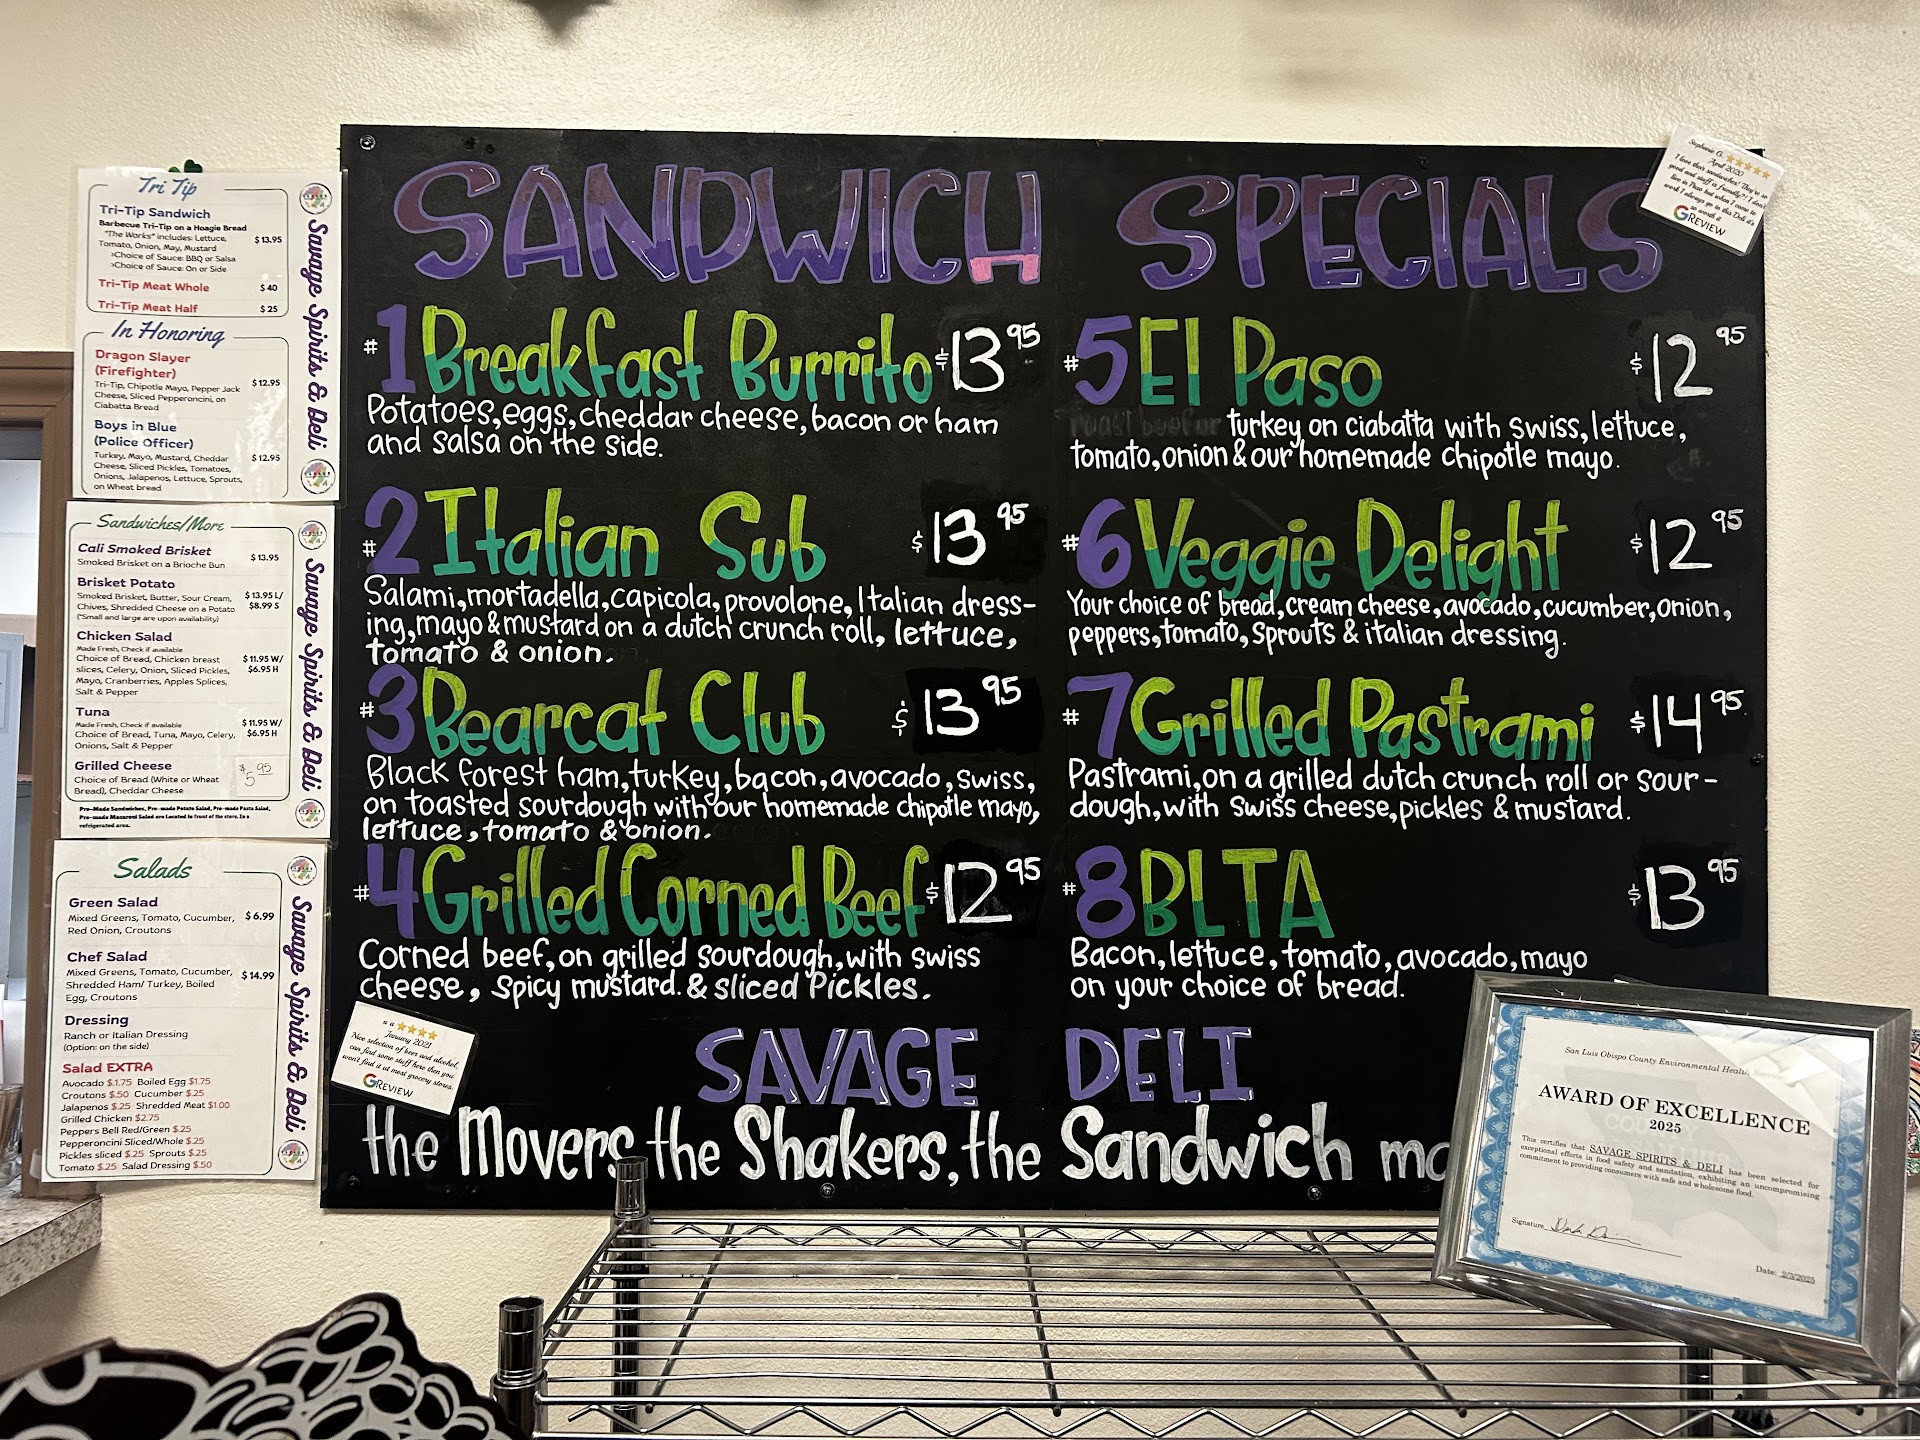 Tri Tip
Tri-Tip Sandwich
Barbecue Tri-Tip on a Hoagie Bread
"The Works" includes: Lettuce,
Tomato, Onion, May, Mustard
>Choice of Sauce: BBQ or Salsa
>Choice of Sauce: On or Side
$ 13.95
Tri-Tip Meat Whole $ 40
Tri-Tip Meat Half $ 25
In Honoring
Dragon Slayer
(Firefighter)
Tri-Tip, Chipotle Mayo, Pepper Jack
Cheese, Sliced Pepperoncini, on
Ciabatta Bread
$ 12.95
Boys in Blue
(Police Officer)
Turkey, Mayo, Mustard, Cheddar
Cheese, Sliced Pickles, Tomatoes,
Onions, Jalapenos, Lettuce, Sprouts,
on Wheat bread
$ 12.95
Savage Spirits & Deli
Sandwiches/More
Cali Smoked Brisket
Smoked Brisket on a Brioche Bun
$ 13.95
Brisket Potato
Smoked Brisket, Butter, Sour Cream,
Chives, Shredded Cheese on a Potato
(*Small and large are upon availability)
$ 13.95 L/
$8.99 S
Chicken Salad
Made Fresh, Check if available
Choice of Bread, Chicken breast
slices, Celery, Onion, Sliced Pickles,
Mayo, Cranberries, Apples Splices,
Salt & Pepper
$ 11.95 W/
$6.95 H
Tuna
Made Fresh, Check if available
Choice of Bread, Tuna, Mayo, Celery,
Onions, Salt & Pepper
$ 11.95 W/
$6.95 H
Grilled Cheese
Choice of Bread (White or Wheat
Bread), Cheddar Cheese
$5 95
Pre-Made Sandwiches, Pre-made Potato Salad, Pre-made Pasta Salad,
Pre-made Macaroni Salad are Located in front of the store. In a
refrigerated area.
Savage Spirits & Deli
Salads
Green Salad
Mixed Greens, Tomato, Cucumber,
Red Onion, Croutons
$ 6.99
Chef Salad
Mixed Greens, Tomato, Cucumber,
Shredded Ham/ Turkey, Boiled
Egg, Croutons
$ 14.99
Dressing
Ranch or Italian Dressing
(Option: on the side)
Salad EXTRA
Avocado $.1.75 Boiled Egg $1.75
Croutons $.50 Cucumber $.25
Jalapenos $.25 Shredded Meat $1.00
Grilled Chicken $2.75
Peppers Bell Red/Green $.25
Pepperoncini Sliced/Whole $.25
Pickles sliced $.25 Sprouts $.25
Tomato $.25 Salad Dressing $.50
Savage Spirits & Deli
SANDWICH SPECIALS
#1 Breakfast Burrito $13 95
Potatoes, eggs, cheddar cheese, bacon or ham
and salsa on the side.
#2 Italian Sub $13 95
Salami, mortadella, capicola, provolone, Italian dress-
ing, mayo & mustard on a dutch crunch roll, lettuce,
tomato & onion.
#3 Bearcat Club $13 95
Black forest ham, turkey, bacon, avocado, swiss,
on toasted sourdough with our homemade chipotle mayo,
lettuce, tomato & onion.
#4 Grilled Corned Beef $12 95
Corned beef, on grilled sourdough, with swiss
cheese, spicy mustard. & sliced Pickles.
#5 El Paso $12 95
roast beef or turkey on ciabatta with swiss, lettuce,
tomato, onion & our homemade chipotle mayo.
#6 Veggie Delight $12 95
Your choice of bread, cream cheese, avocado, cucumber, onion,
peppers, tomato, sprouts & italian dressing.
#7 Grilled Pastrami $14 95
Pastrami, on a grilled dutch crunch roll or sour-
dough, with swiss cheese, pickles & mustard.
#8 BLTA $13 95
Bacon, lettuce, tomato, avocado, mayo
on your choice of bread.
SAVAGE DELI
the Movers, the Shakers, the Sandwich ma
Stephanie G.
April 2020
I love their sandwiches! They're so
good and staff is friendly!!! I don't
live in Paso but when I come to
work I always go to this Deli it's
so worth it
GREVIEW
u a
January 2021
Nice selection of beer and alcohol,
can find some stuff here then you
won't find it at most grocery stores.
GREVIEW
San Luis Obispo County Environmental Health
AWARD OF EXCELLENCE
2025
This certifies that SAVAGE SPIRITS & DELI has been selected for
exceptional efforts in food safety and sanitation, exhibiting an uncompromising
commitment to providing consumers with safe and wholesome food.
Signature
Date: 2/3/2025